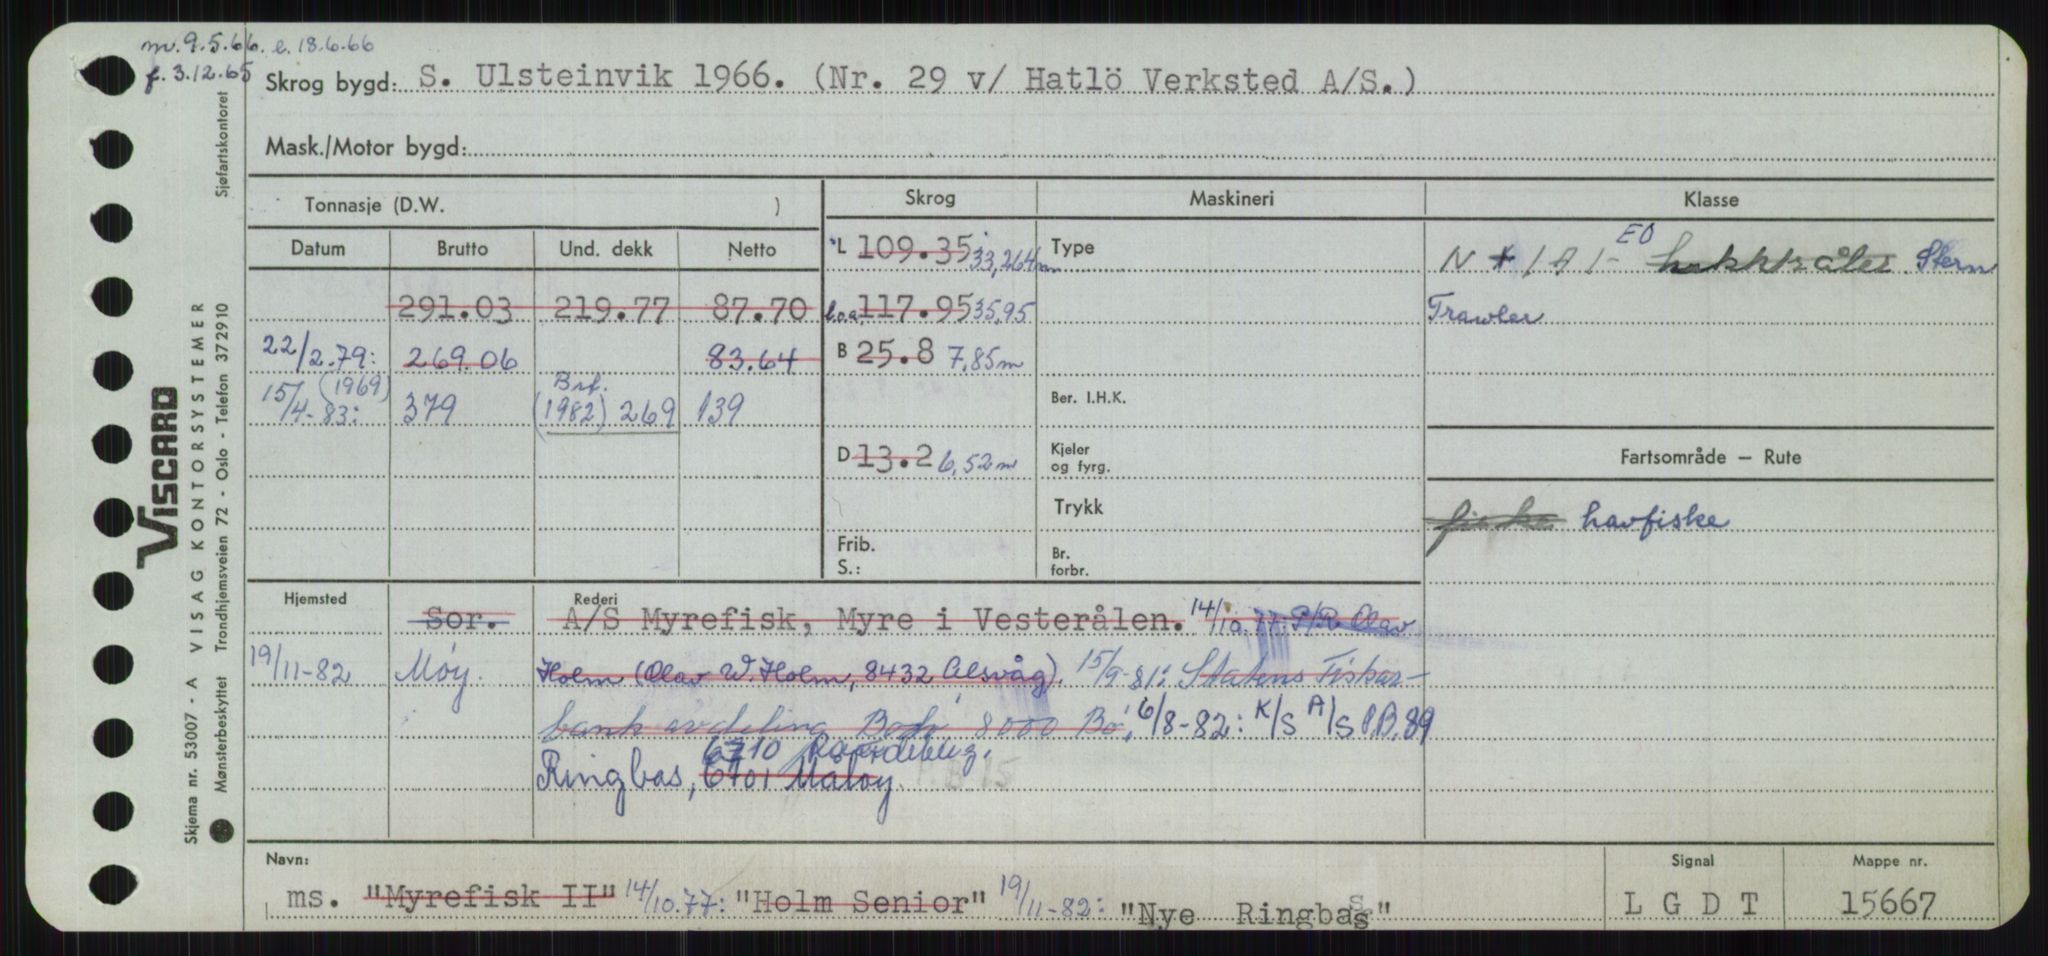 m. 9.5.66. e. 18.6.66
f. 3.12.65
Skrog bygd: S. Ulsteinvik 1966. (Nr. 29 v/ Hatlö Verksted A/S.)
Mask./Motor bygd:
Tonnasje (D.W. )
Skrog Maskineri Klasse
Datum Brutto Und. dekk Netto
L 109.35 33,264m Type
N * 1 A 1 - EO hekktråler Stern
291.03 219.77 87.70
l.o.a. 117.95 35,95
Trawler
22/2.79: 269.06 83.64
B 25.8 7,85m
(1969) Brf.
15/4-83: 379 (1982) 269 139
Ber. I.H.K.
D 13.2 6,52m Kjeler
og fyrg.
Fartsområde — Rute
Trykk
fiske havfiske
Frib.
S.:
Br.
forbr.
Hjemsted Rederi
Sor. A/S Myrefisk, Myre i Vesterålen. 14/10.77: P/R Olav
19/11-82 Møy. Holm (Olav W. Holm, 8432 Alsvåg). 15/9-81: Statens Fiskar-
bank avdeling Bodø, 8000 Bo, 6/8-82: K/S A/S P.B. 89
6710
Ringbas, 6701 Måløy
Navn: Signal Mappe nr.
ms. "Myrefisk II" 14/10.77: "Holm Senior" 19/11-82: "Nye Ringbas" L G D T 15667
Sjøfartskontoret
VISCARD
Skjema nr. 53007 - A VISAG KONTORSYSTEMER
Mønsterbeskyttet Trondhjemsveien 72 - Oslo - Telefon 372910